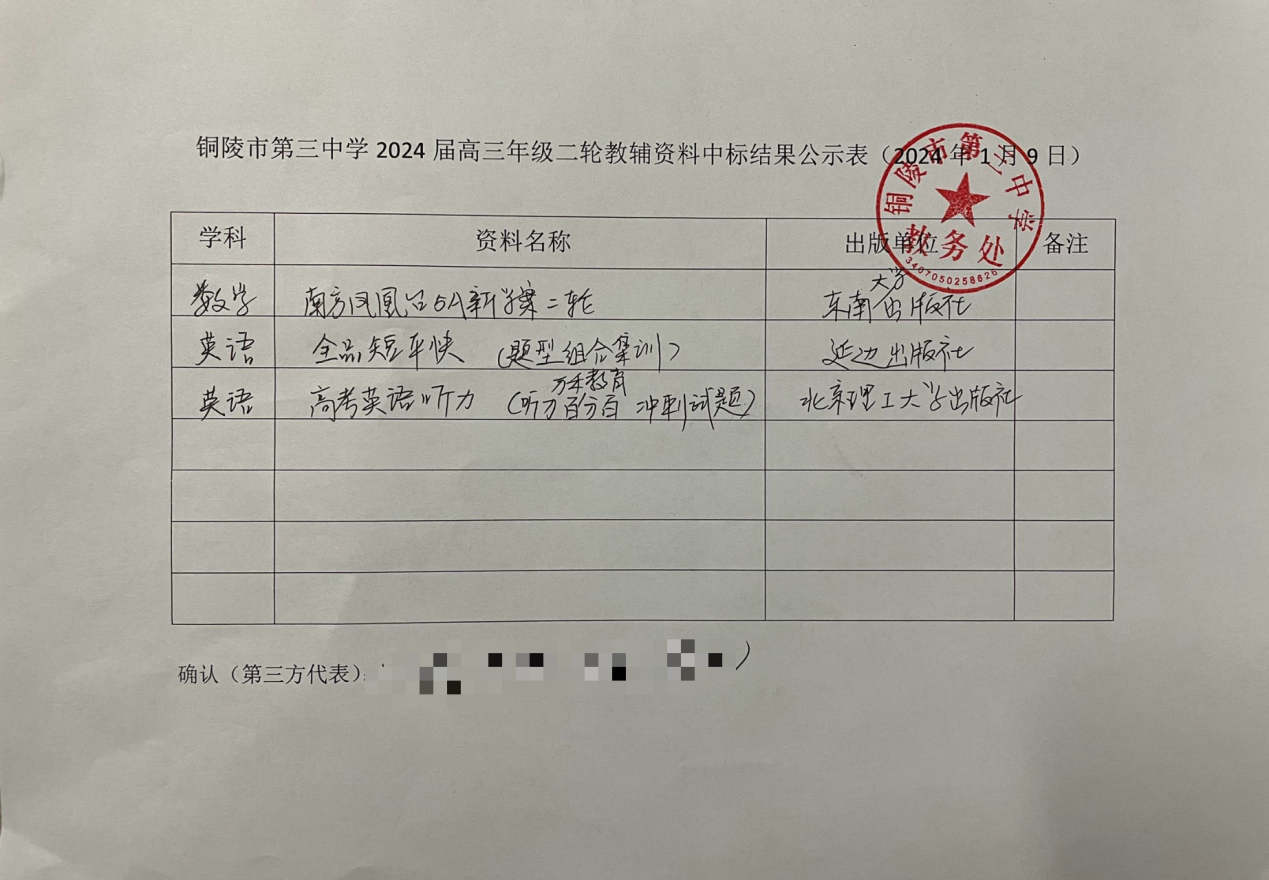 铜陵市第三中学 2024 届高三年级二轮教辅资料中标结果公示表（2024 年 1 月 9 日）
铜陵市第三中学
教务处
3407050258626
学科 资料名称 出版单位 备注
数学 南方凤凰台5A新学案二轮 东南大学出版社
英语 全品短平快 (题型组合集训) 延边出版社
英语 高考英语听力 (万禾教育听力百分百 冲刺试题) 北京理工大学出版社
确认（第三方代表）: